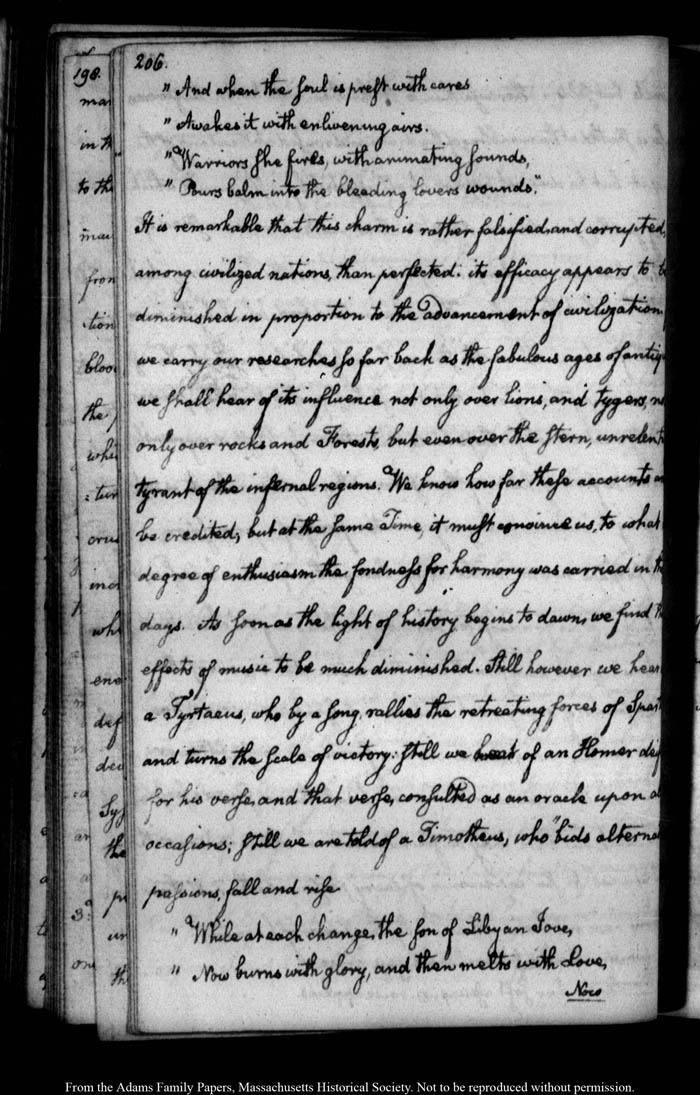 206.
" And when the soul is prest with cares
" Awakes it with enlivening airs.
" Warriors she fires, with animating sounds,
" Pours balm into the bleeding lovers wounds."
It is remarkable that this charm is rather falsified, and corrupted,
among civilized nations, than perfected: its efficacy appears to b
diminished in proportion to the advancement of civilization.
we carry our researches so far back as the fabulous ages of antiq
we shall hear of its influence not only over lions, and tygers, n
only over rocks and Forests, but even over the stern, unrelent
tyrant of the infernal regions. We know how far these accounts a
be credited; but at the same Time, it must convince us, to what
degree of enthusiasm the fondness for harmony was carried in th
days. As soon as the light of history begins to dawn, we find th
effects of music to be much diminished. Still however we hear
a Tyrtaeus, who by a song, rallies the retreating forces of Spar
and turns the scale of victory: still we hear of an Homer dei
for his verse, and that verse, consulted as an oracle upon a
occasions; still we are told of a Timotheus, who "bids alternat
passions, fall and rise
" While at each change, the son of Libyan Jove,
" Now burns with glory, and then melts with Love,
Now
198.
mar
in th
to the
mac
fron
tion
bloo
the
whi
: tur
crue
ince
whi
ene
def
dec
Syg
the
pr
3.
un
one
th
From the Adams Family Papers, Massachusetts Historical Society. Not to be reproduced without permission.